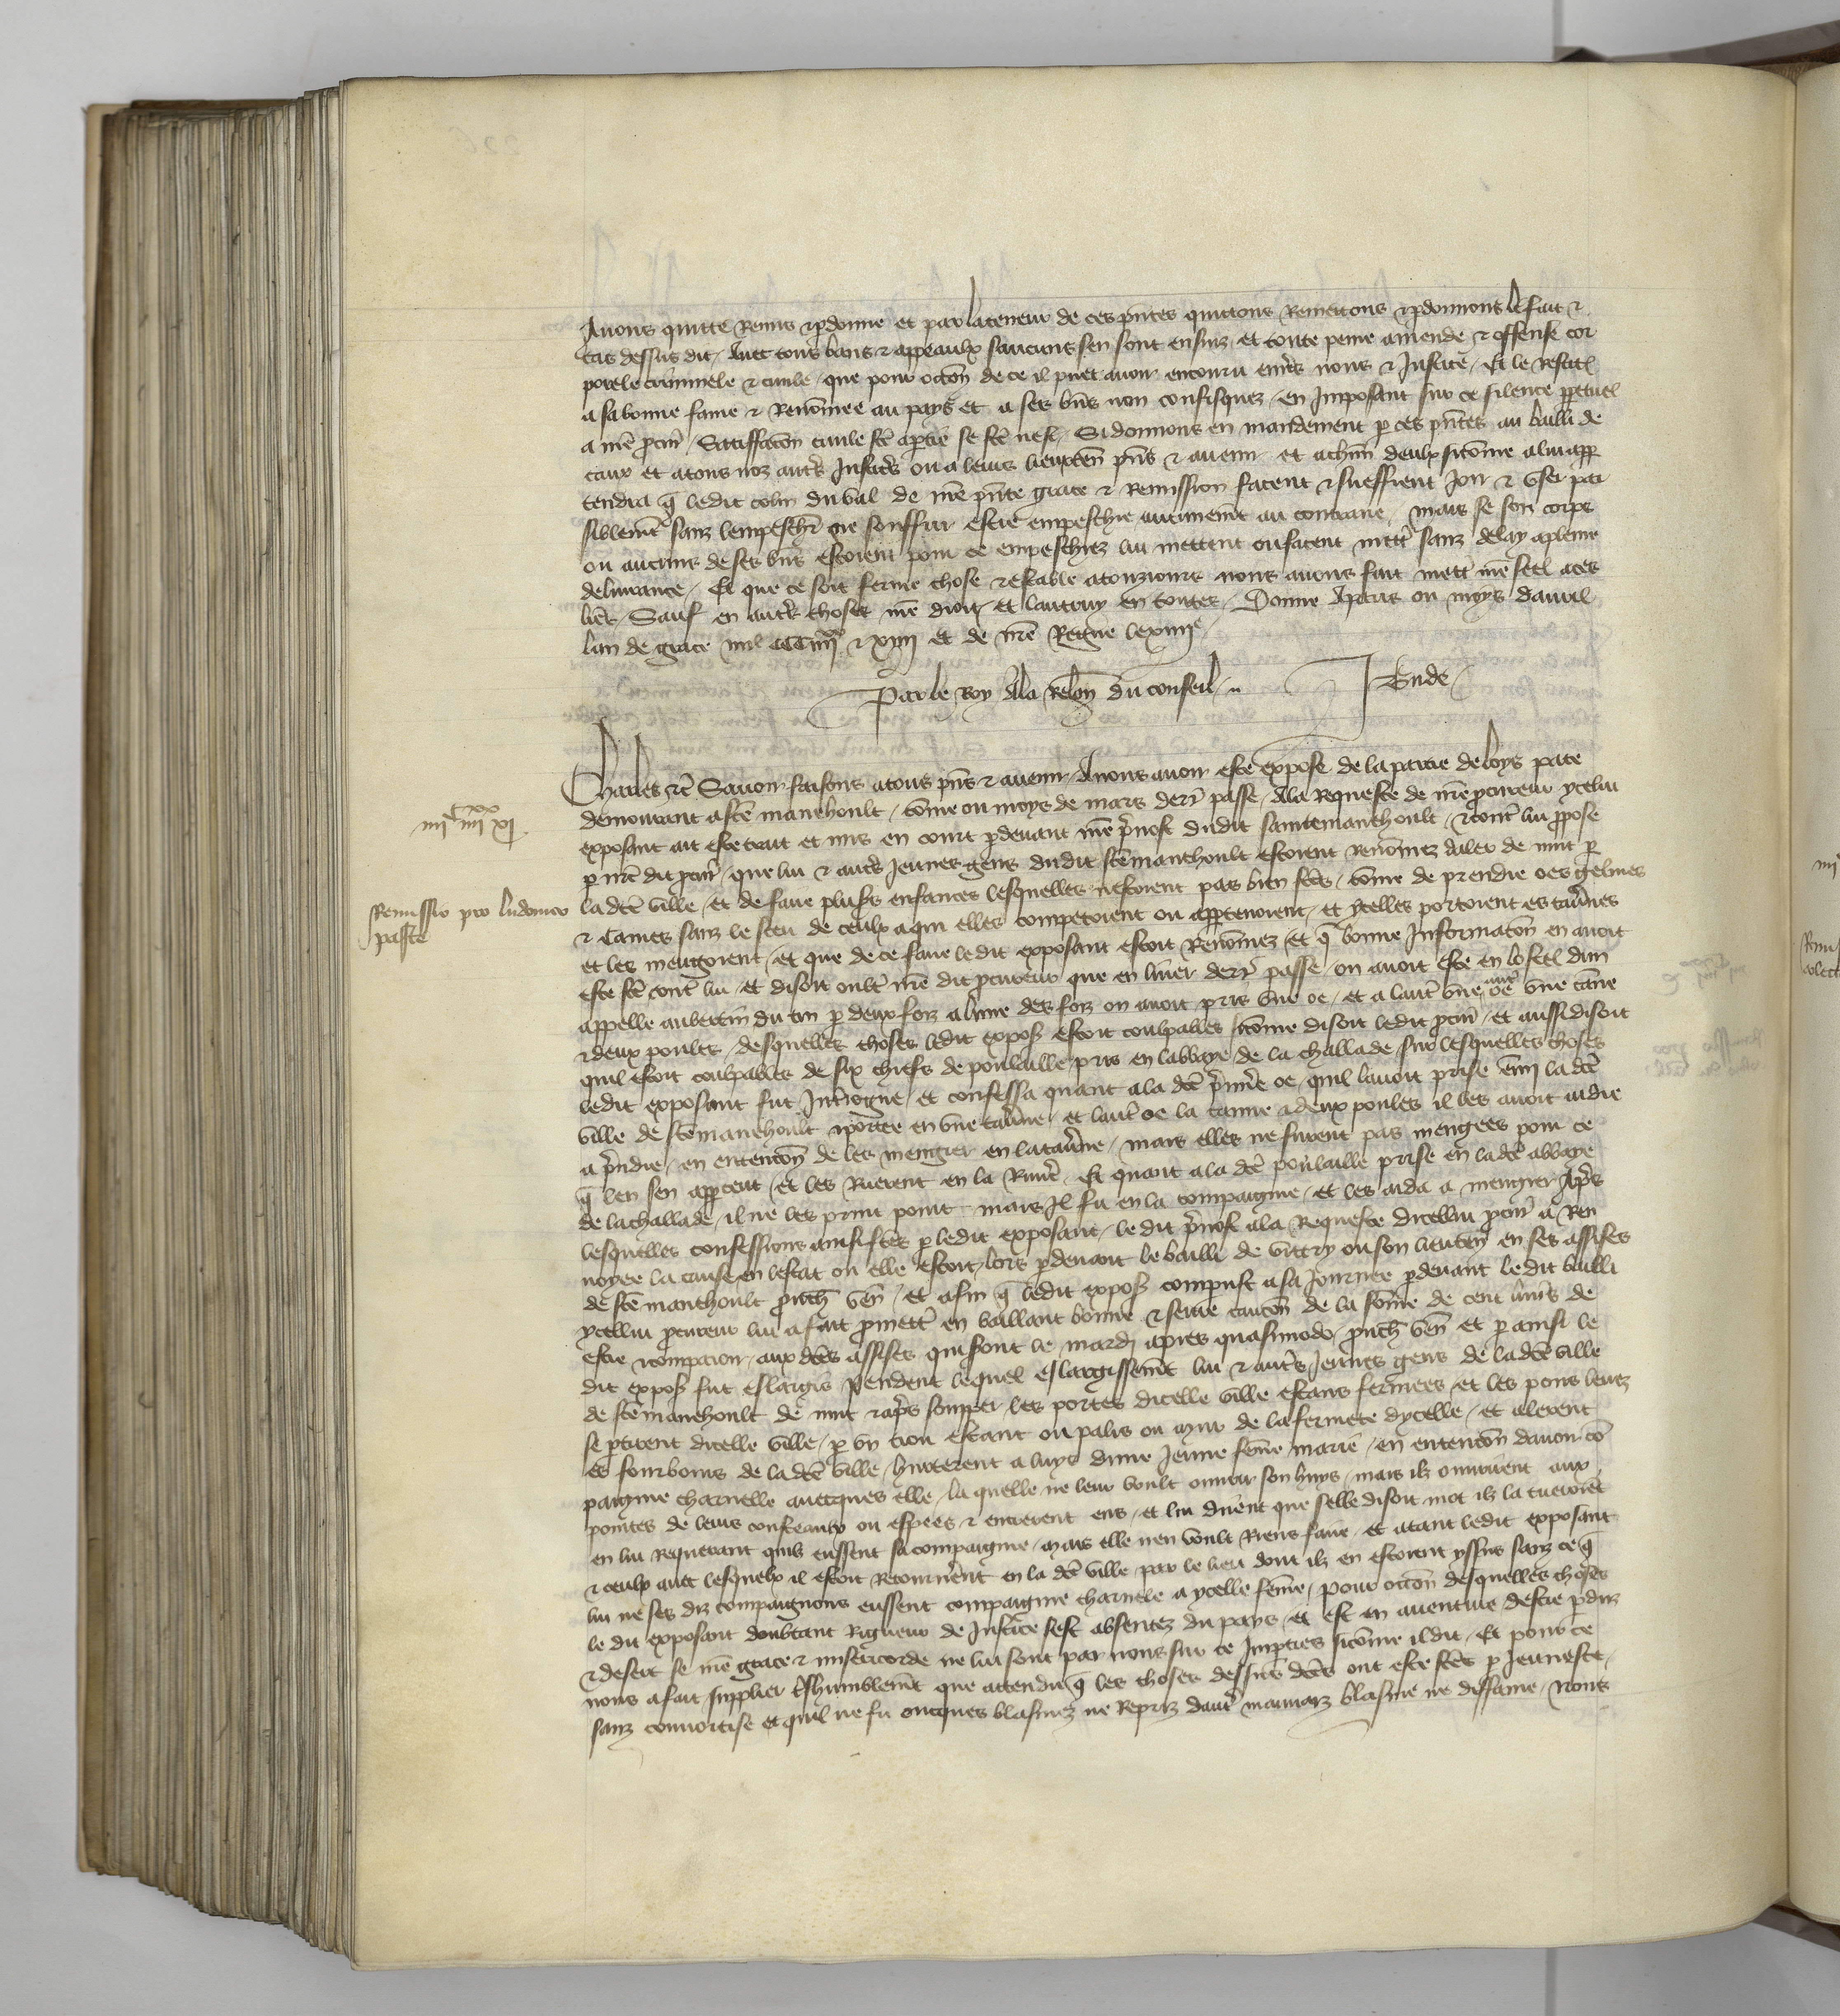 Avons quitte Remis & pardonne et par la teneur de ces pntes quictons Remettons & pdonnons le fait &
cas dessus dit. Avec touz bans & appeaulx saucuns sen sont ensuiz et toute peine amende & offense cor
porele criminele & civile que pour occon de ce il puet avoir encouru envs nous & Justice Et le restit
a sa bonne fame & Renommee au pays et a ses biens non confisquez en Imposant sur ce silence ppetuel
a nre pcur Satisfaccon civile fce a ptie se fce nest Si donnons en mandement p ces pntes au bailli de
caux et a tous noz autres Justiciers ou a leurs lieuxten pns & avenir et a chun deulx si comme a lui app
tendra q le dit colin du val de nre pnte grace & Remission facent & sueffrent Joir & user pai
siblement sanz lempeschier ne souffrir estre empeschie aucunement au contraire mais se son corps
ou aucuns de ses biens estoient pour ce empeschiez lui mettent ou facent mettre sanz delay a pleine
delivrance Et que ce soit ferme chose & estable a tousiours nous avons fait mettre nre seel a ces
lres Sauf en autres choses nre droit et lautruy en toutes Donne A paris ou moys davril
lan de grace mil CCC iiiixx & xiiii et de nre Regne le xiiiie
Par le Roy A la Relon du conseil
Charles &c Savoir faisons a tous pns & avenir A nous avoir este expose de la partie de loys paste
demourant a ste manehoult comme ou moys de mars derr passe A la requeste de nre pcureur ycelui
exposant ait este trait et mis en court pdevant nre pvost dudit saintemanehoult & contre lui ppose
p nre dit pcur que lui & autres Jeunes gens dudit ste manehoult estoient renommez daler de nuit p
la dce ville et de faire plusrs enfances lesquelles nestoient pas bien fces comme de prendre oes gelines
& canes sanz le sceu de ceulx a qui elles competoient ou apptenoient et ycelles portoient es tavnes
et les mengoient et que de ce faire le dit exposant estoit Renommez et q bonne Informacon en avoit
este fce contre lui et disoit oultre nre dit pcureur que en liver derr passe on avoit este en lostel dun
appelle aubertin du tin p deux foiz a lune des foiz on avoit pris une oe et a lautre une autre oe une canne
& deux poules desquelles choses ledit expos estoit coulpables si comme disoit ledit pcur et aussi disoit
quil estoit coulpables de six chiefs de poulaille pris en labbaye de la challade sur lesquelles choses
ledit exposant fut Introgue et confessa quant a la dce pmiere oe quil lavoit prise emi la dce
ville de ste manehoult & portee en une tavne et lautre oe la canne & deux poules il les avoit aidie
a pndre en entencon de les mengier en la tavne mais elles ne furent pas mengees pour ce
q len sen appceut et les ruerent en la Riviere Et quant a la dce poulaille prise en la dce abbaye
de la challade il ne les print point mais Il fu en la compaignie et les aida a mengier Aps
lesquelles confessions ainsi fces p ledit exposant le dit pvost a la Requeste dicellui pcur a Ren
voyee la cause en lestat ou elle estoit lors pdevant le bailli de vittry ou son lieuten en ses assises
de ste manehoult prouch ven et afin q ledit expos compust a sa Journee pdevant ledit bailli
ycellui pcureur lui a fait pmettre en baillant bonne & seure caucon de la somme de cent livres de
estre & comparoir aux dces assises qui sont le mardi apres quasimodo prouch ven et p ainsi le
dit expos fut eslargis Pendent lequel eslargissement lui & autres Jeunes gens de la dce ville
de ste manehoult de nuit & aps souper les portes dicelle ville estans fermees et les pons levez
se ptirent dicelle ville p un trou estant ou palis ou mur de la fermete dycelle et alerent
es fourbours de la dce ville hurterent a luys dune Jeune femme mariee en entencon davoir co
paignie charnelle avecques elle la quelle ne leur voult ouvrir son huys mais ilz ouvrirent aux
pointes de leurs cousteaulx ou espees & entrerent ens et lui dirent que selle disoit mot ilz la tueroient
en lui requerant quilz eussent sa compaignie mais elle nen voult riens faire et atant ledit exposant
& ceulx avec lesquelx il estoit Retournerent en la dce ville par le lieu dont ilz en estoient yssus sanz ce q
lui ne ses diz compaignons eussent compaignie charnele a ycelle femme Pour occon desquelles choses
le dit exposant doubtant Rigueur de Justice sest absentez du pays et est en aventure destre pduz
& desert se nre grace & misericorde ne lui sont par nous sur ce Impties si comme il dit Et pour ce
nous a fait supplier treshumblement que attendu q les choses dessus dces ont este fces p Jeunesce
sanz convoitise et quil ne fu oncques blasmez ne Repriz dautre mauvaiz blasme ne diffame Nous
iiiic iiiixx xi
Remissio pro ludovico
paste